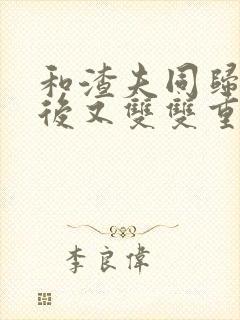 和渣夫同歸
後又雙雙重
李良偉